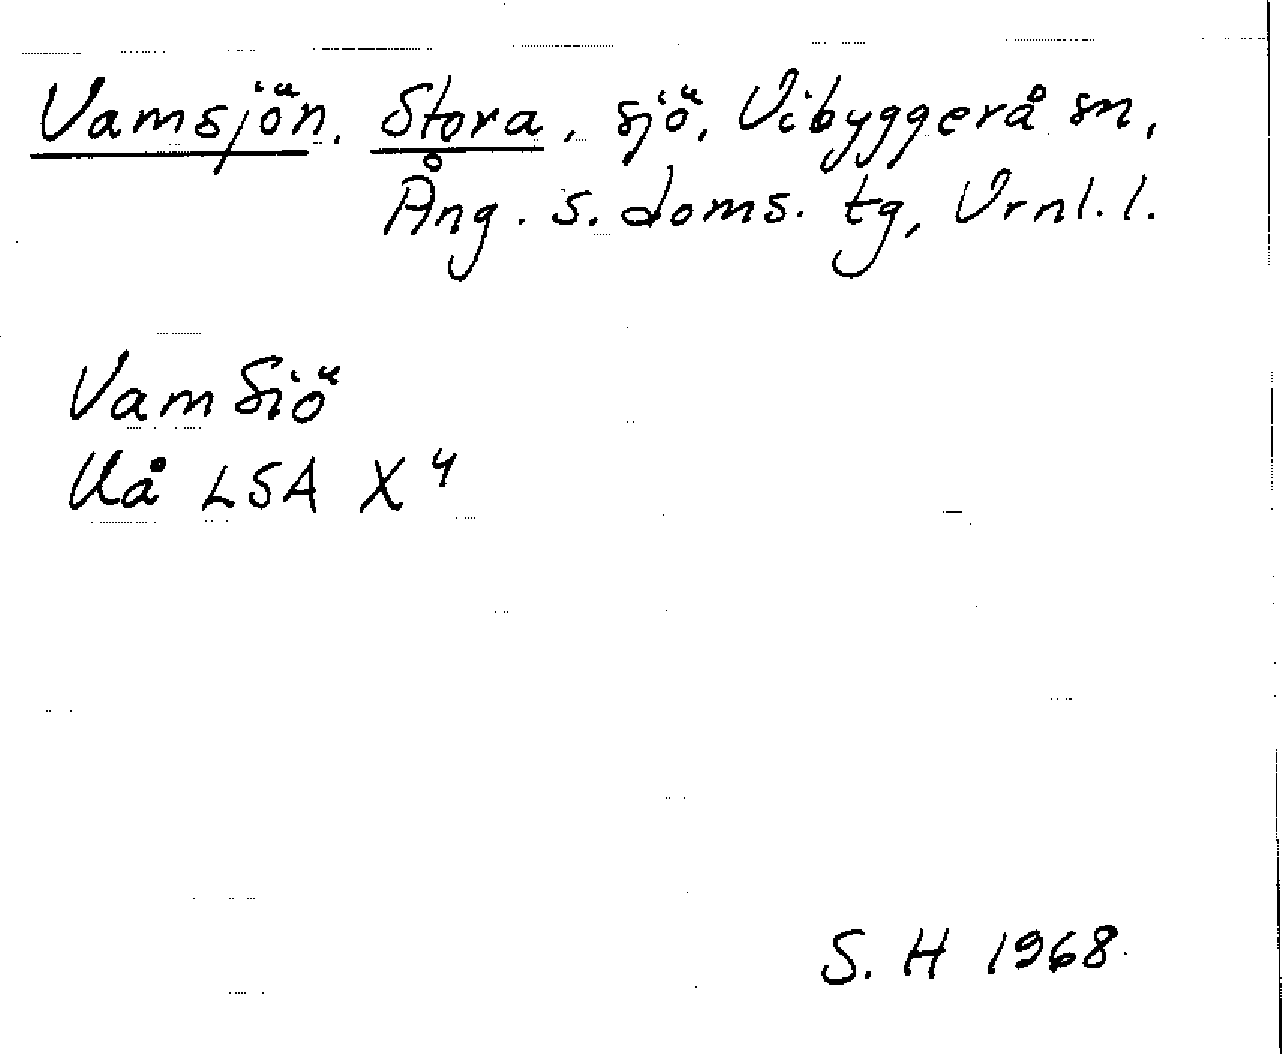 Vamsjön, Stora, sjö, Vibyggerå sn,
Ång. s. doms. tg, Vrnl. l.
VamSiö
Uå LSA X 4
S. H 1968